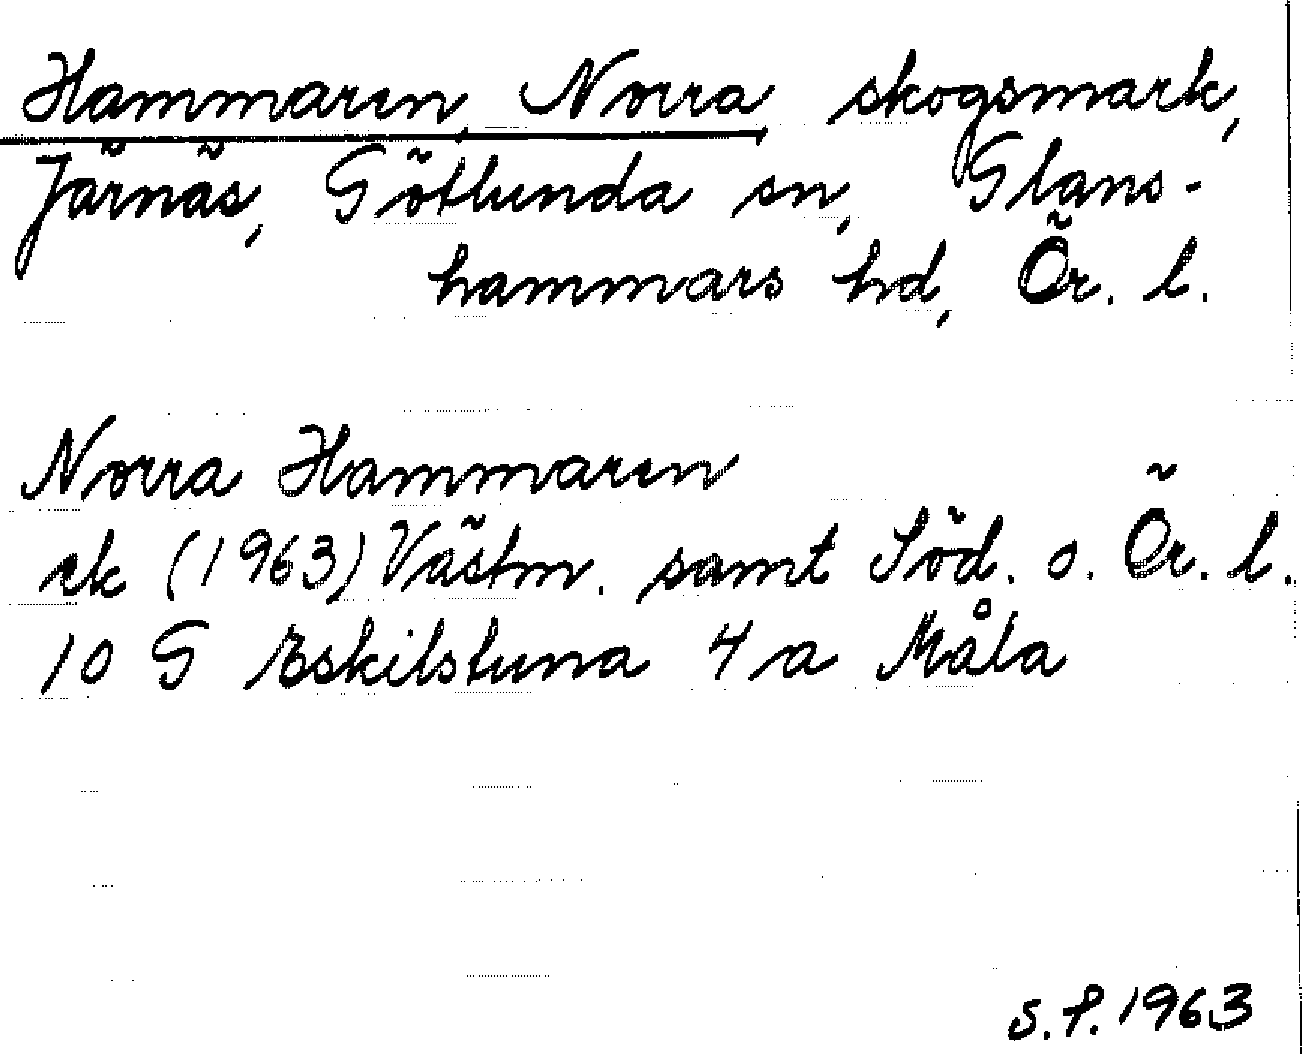 Hammaren, Norra, skogsmark,
Järnäs, Götlunda sn, Glans-
hammars hd, Ör. l.
Norra Hammaren
ek (1963) Västm. samt Söd. o. Ör. l.
10 G Eskilstuna 4 a Måla
S.P. 1963